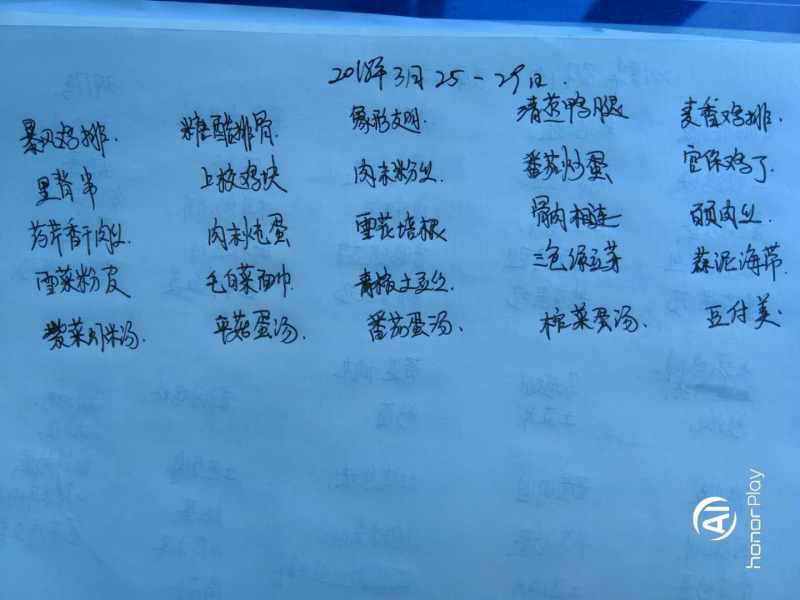 2018年3月25-29日.
暴风鸡排. 糖醋排骨. 象形支明 清蒸鸭腿 麦香鸡排.
里脊串 上校鸡块 肉末粉丝. 番茄炒蛋 宫保鸡丁.
药芹香干肉丝. 肉末炖蛋 雪花培根 骨肉相连 百页肉丝.
雪菜粉皮 毛白菜面巾 青椒土豆丝. 三色绿豆芽 蒜泥海带.
紫菜虾米汤. 平菇蛋汤. 番茄蛋汤. 榨菜蛋汤. 豆付羹.
AI honor Play